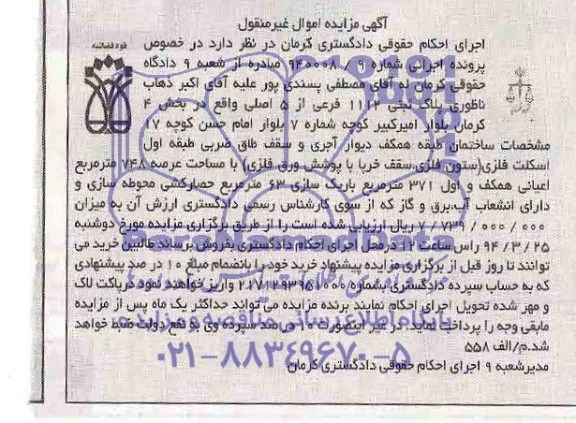 آگهی مزایده اموال غیرمنقول
قوه قضائیه
اجرای احکام حقوقی دادگستری کرمان در نظر دارد در خصوص
پرونده اجرائی شماره ۹۴۰۰۰۸ ۹ صادره از شعبه ۹ دادگاه
حقوقی کرمان له آقای مصطفی پسندی پور علیه آقای اکبر ذهاب
ناظوری پلاک ثبتی ۱۱۱۲ فرعی از ۵ اصلی واقع در بخش ۴
کرمان بلوار امیرکبیر کوچه شماره ۷ بلوار امام حسن کوچه ۱۷
مشخصات ساختمان طبقه همکف دیوار آجری و سقف طاق ضربی طبقه اول
اسکلت فلزی(ستون فلزی،سقف خرپا با پوشش ورق فلزی) با مساحت عرصه ۷۴۸ مترمربع
اعیانی همکف و اول ۳۷۱ مترمربع باریک سازی ۶۳ مترمربع حصارکشی محوطه سازی و
دارای انشعاب آب،برق و گاز که از سوی کارشناس رسمی دادگستری ارزش آن به میزان
۷/۷۳۹/۰۰۰/۰۰۰ ریال ارزیابی شده است را از طریق برگزاری مزایده مورخ دوشنبه
۹۴/۳/۲۵ راس ساعت ۱۲ در محل اجرای احکام دادگستری بفروش برساند طالبین خرید می
توانند تا روز قبل از برگزاری مزایده پیشنهاد خرید خود را بانضمام مبلغ ۱۰ در صد پیشنهادی
که به حساب سپرده دادگستری بشماره ۲۱۷۱۲۹۳۹۵۱۰۰۰ واریز خواهند نمود درپاکت لاک
و مهر شده تحویل اجرای احکام نمایند برنده مزایده می تواند حداکثر یک ماه پس از مزایده
مابقی وجه را پرداخت نماید در غیر اینصورت ۱۰ در صد سپرده وی به نفع دولت ضبط خواهد
شد.م/الف ۵۵۸
پایگاه اطلاع رسانی مناقصه و مزایده
۰۲۱-۸۸۳۴۹۶۷۰-۵
مدیرشعبه ۹ اجرای احکام حقوقی دادگستری کرمان